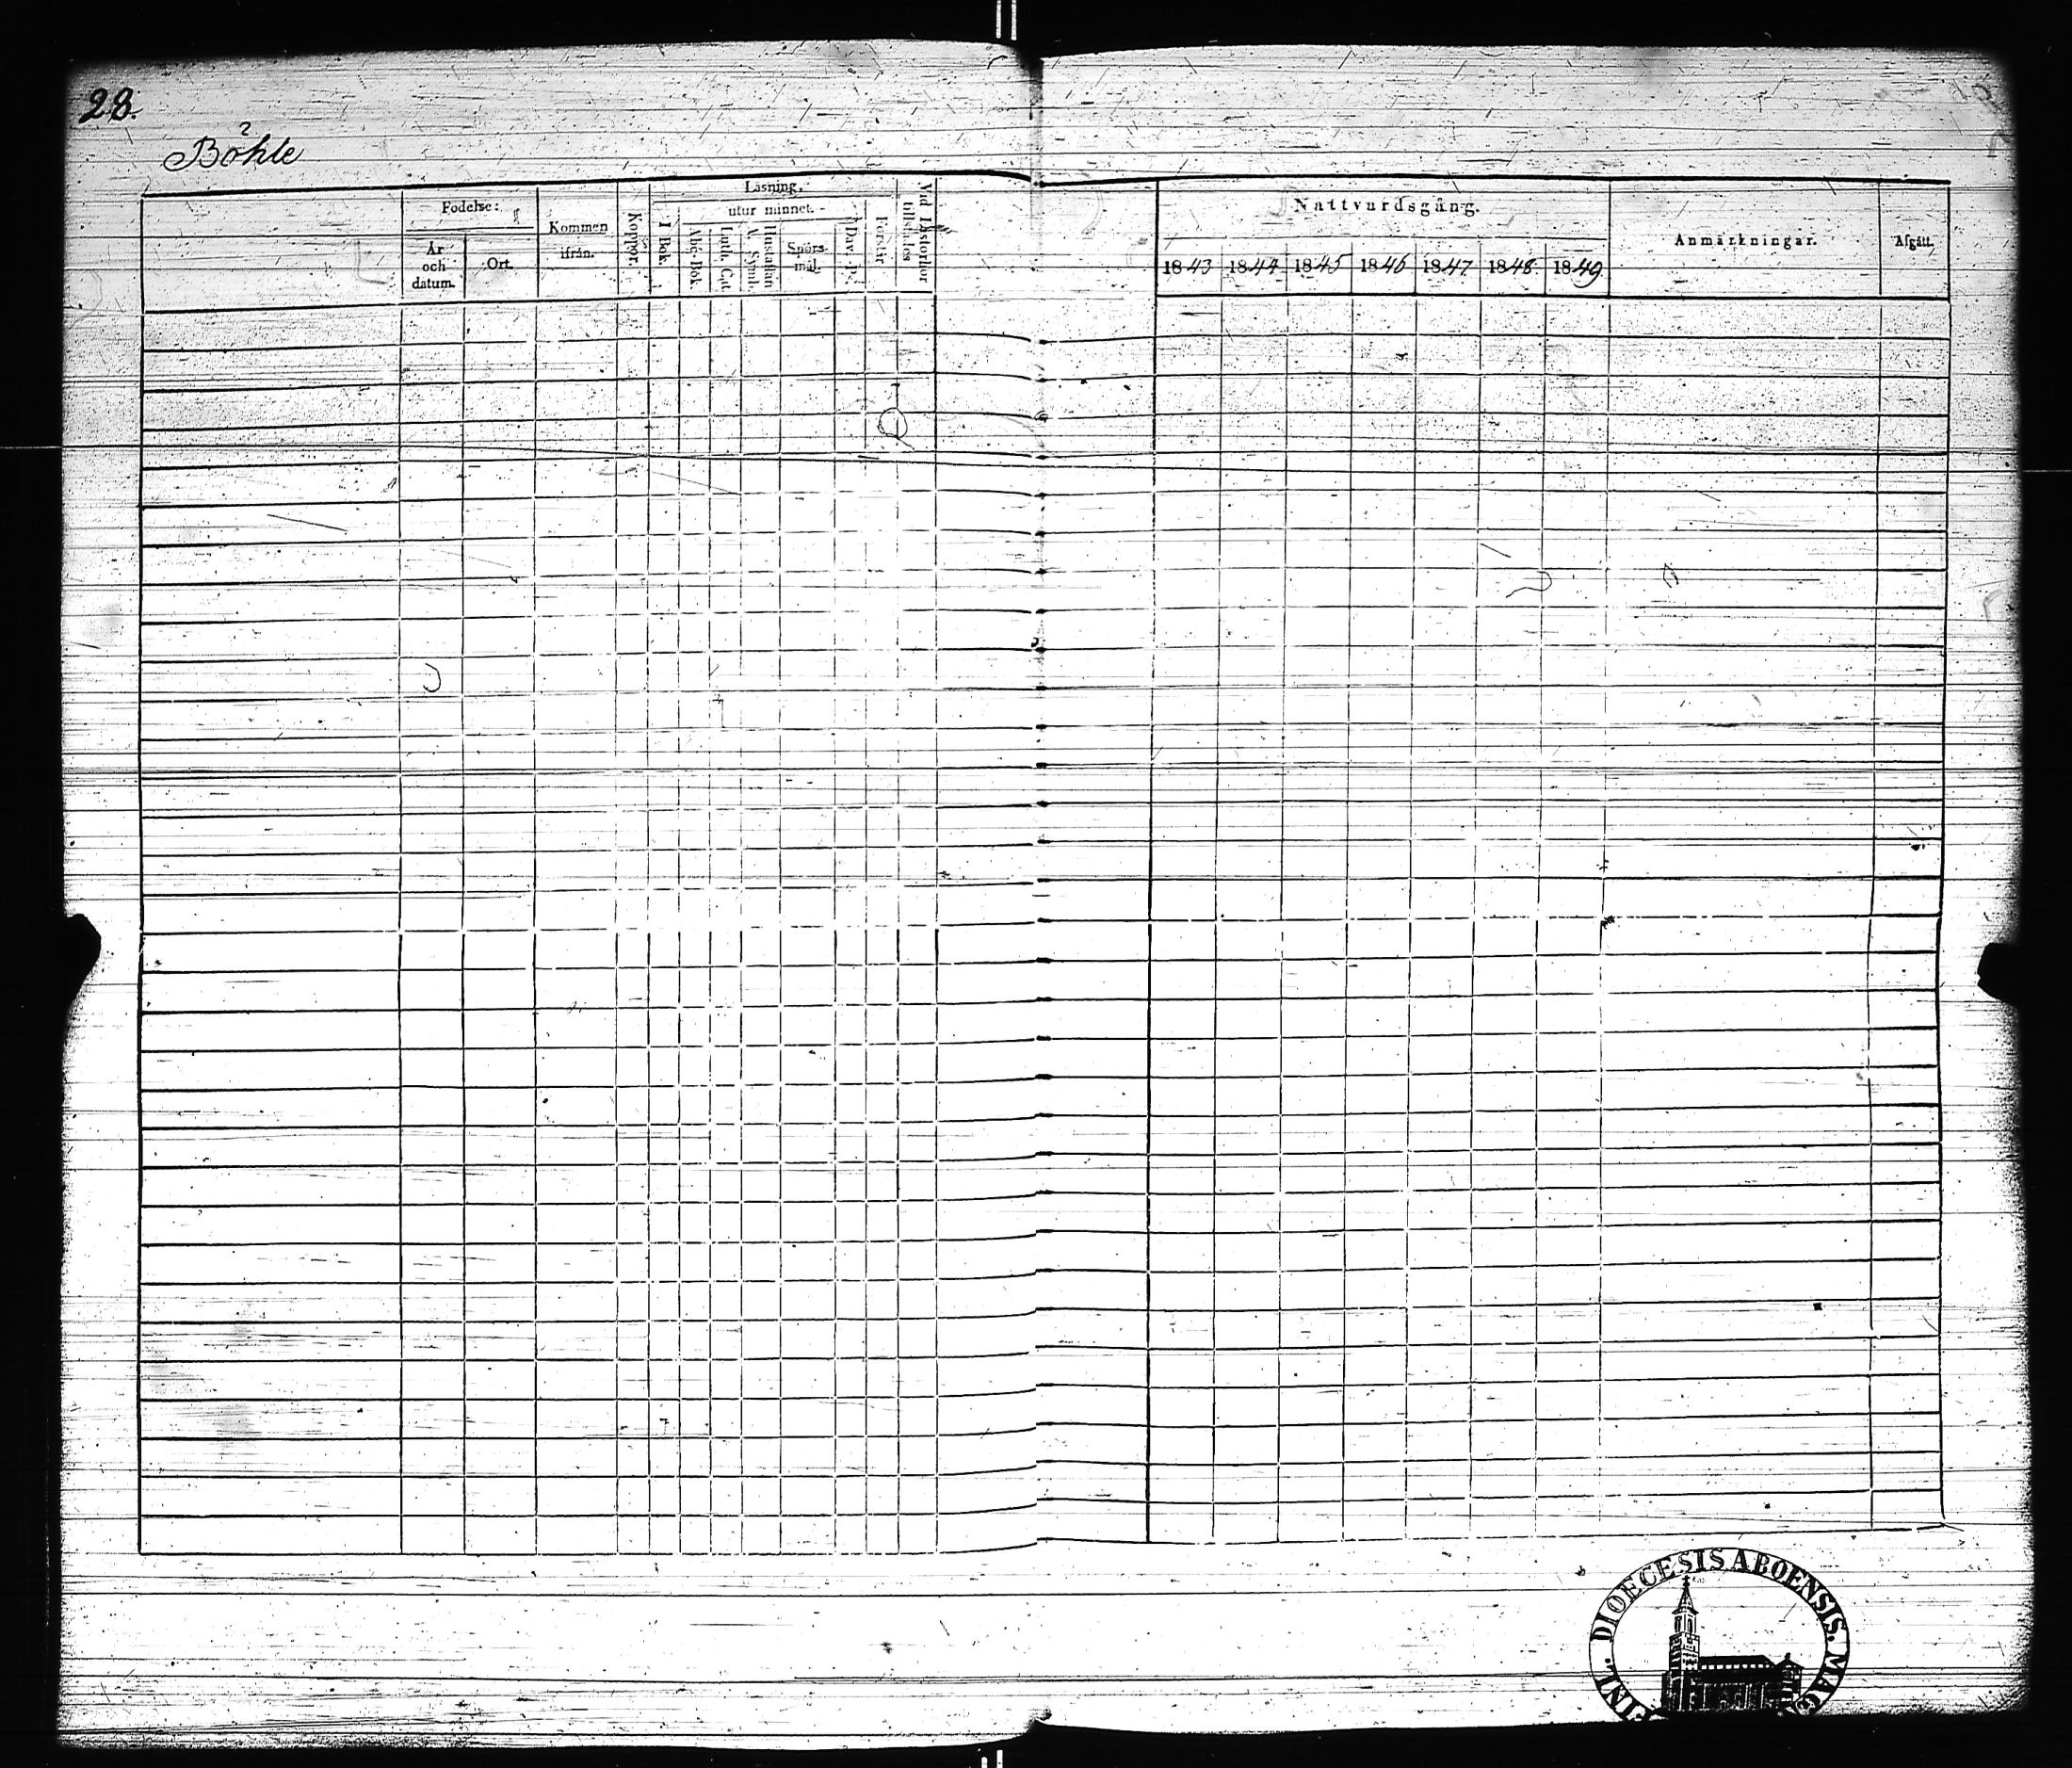 28.
Böhle
Födelse:
År och datum.
Ort.
Kommen ifrån.
Koppor.
Läsning,
I Bok.
utur minnet.
Abc-Bok.
Luth. Cat.
Hustaflan A. Symb.
Spörs-mål.
Dav. Ps.
Förstår
Vid Läsförhör tillstädes
Nattvardsgång.
1843 1844 1845 1846 1847 1848 1849
Anmärkningar.
Afgått.
FINL. DIOECESIS ABOENSIS. MAG